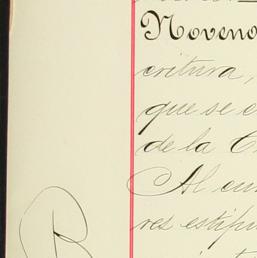 Noveno
critura,
que se c
de la C
Al cum
res estipu